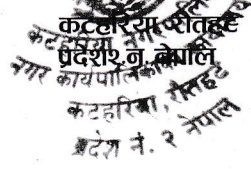 कटहरिया, रौतहट
प्रदेश २ नं. नेपाल
नगर कार्यपालिका
कटहरिया, रौतहट
प्रदेश नं. २ नेपाल